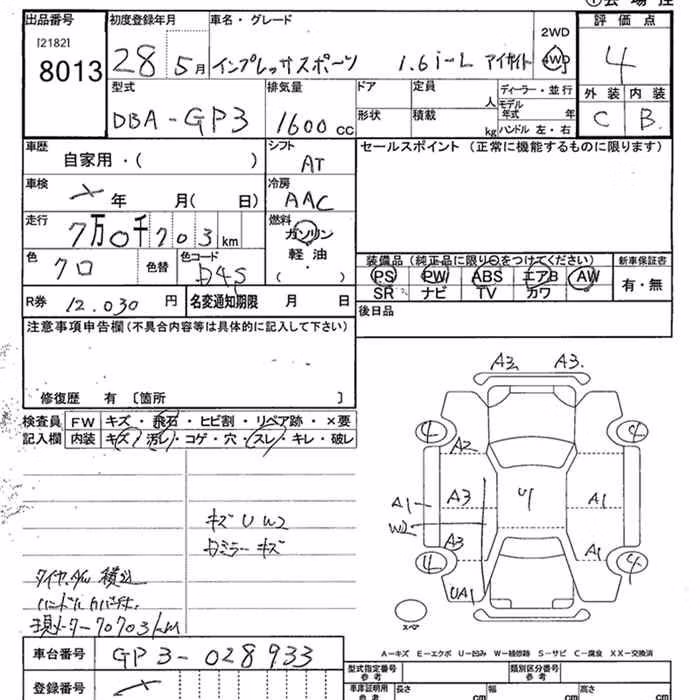 出品番号 初度登録年月 車名・グレード 2WD 評価点
[2182] 8013 28 5月 インプレッサスポーツ 1.6i-L アイサイト 4WD 4
型式 排気量 ドア 定員 人 ディーラー・並行 外装 内装
DBA-GP3 1600 cc 形状 積載 kg モデル年式 年 ハンドル 左・右 C B
車歴 自家用・( ) シフト AT セールスポイント (正常に機能するものに限ります)
車検 年 月( 日) 冷房 AAC
走行 7万0千703km 燃料 ガソリン
軽・油
( )
色 クロ 色替 色コード D4S
装備品 (純正品に限り○をつけてください) 新車保証書
PS PW ABS エアB AW 有・無
SR ナビ TV カワ
R券 12.030円 名変通知期限 月 日 後日品
注意事項申告欄(不具合内容等は具体的に記入して下さい)
修復歴 有〔箇所 〕
検査員 FW キズ・飛石・ヒビ割・リペア跡・×要
記入欄 内装 キズ・汚レ・コゲ・穴・スレ・キレ・破レ
A2 A3
A2
A3 U1 A1
A1
W2
A3 A1
UA1
4 4
スペア
キズ U W2
ミラーキズ
タイヤ 積込
ハンドル
現メーター70703km
A-キズ E-エクボ U-凹み W-補修跡 S-サビ C-腐食 XX-交換済
車台番号 GP3-028933
型式指定番号 参考 類別区分番号 参考
登録番号
車庫証明用 参考 長さ cm 幅 cm 高さ cm